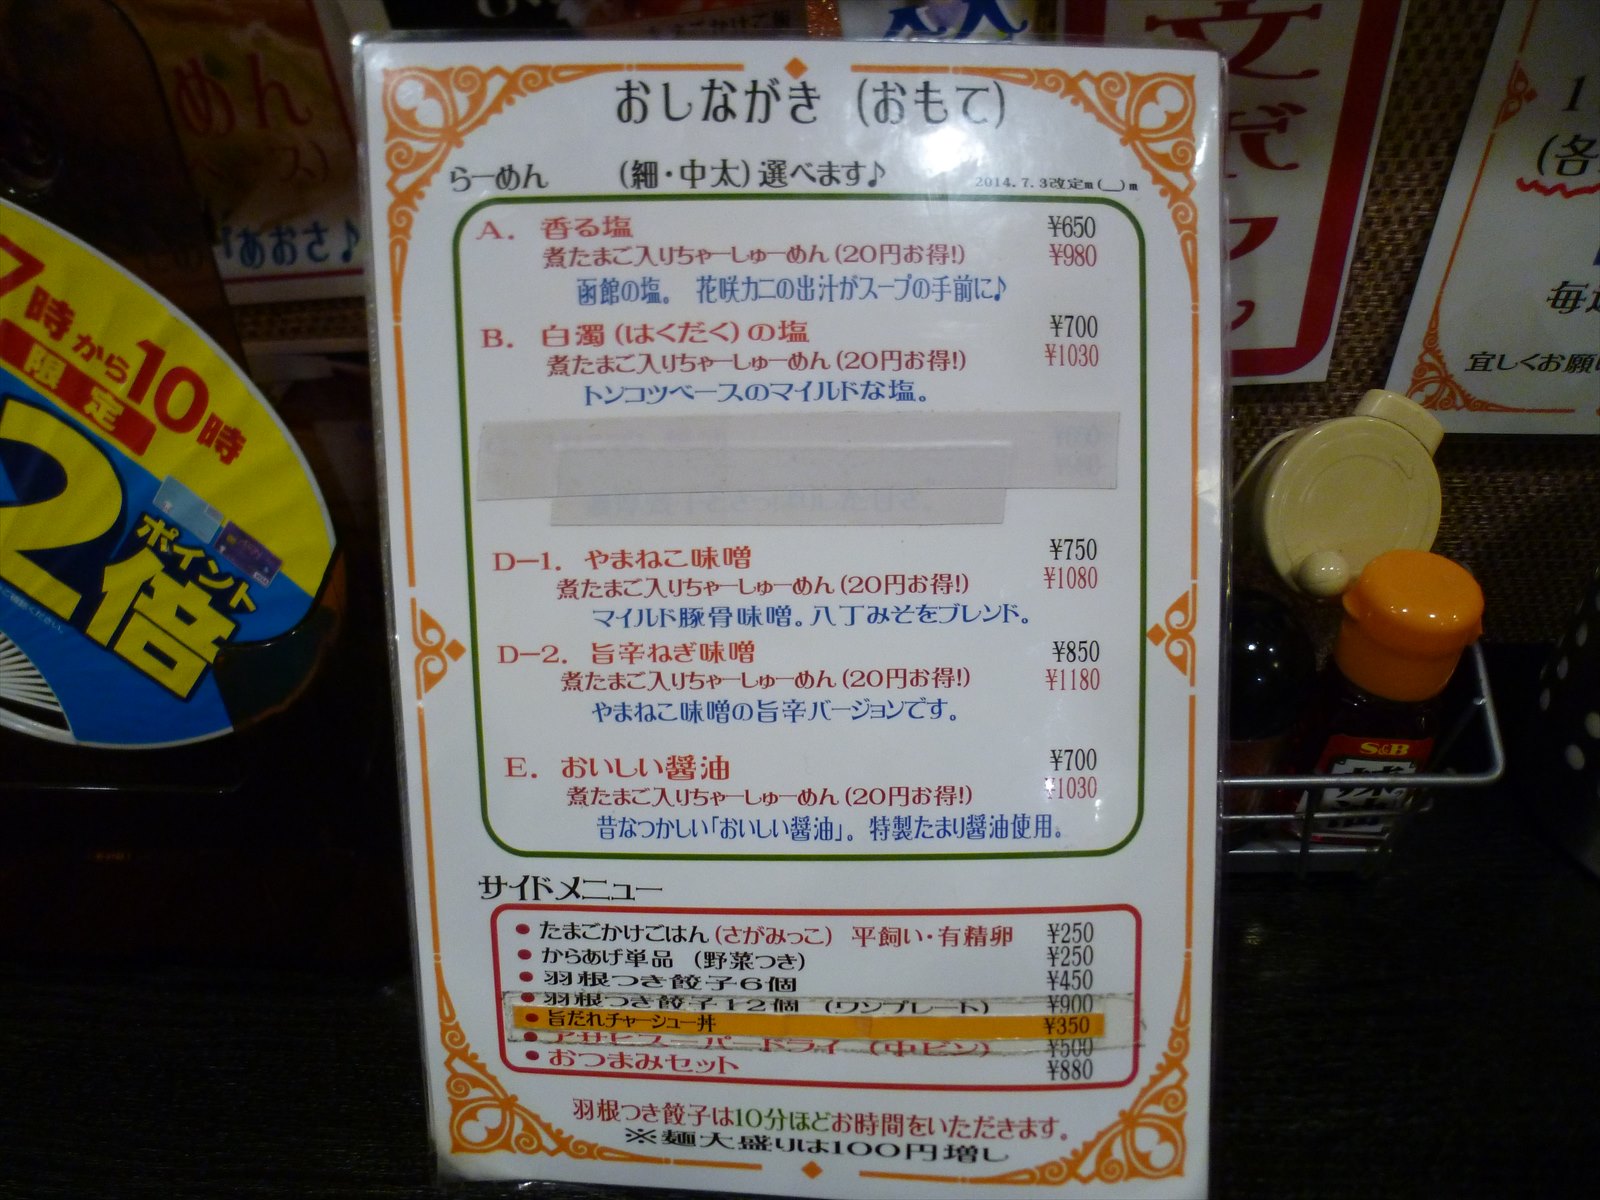 おしながき (おもて)
らーめん (細・中太)選べます♪ 2014.7.3改定m(__)m
A. 香る塩 ¥650
煮たまご入りちゃーしゅーめん(20円お得!) ¥980
函館の塩。 花咲カニの出汁がスープの手前に♪
B. 白濁(はくだく)の塩 ¥700
煮たまご入りちゃーしゅーめん(20円お得!) ¥1030
トンコツベースのマイルドな塩。
D-1. やまねこ味噌 ¥750
煮たまご入りちゃーしゅーめん(20円お得!) ¥1080
マイルド豚骨味噌。八丁みそをブレンド。
D-2. 旨辛ねぎ味噌 ¥850
煮たまご入りちゃーしゅーめん(20円お得!) ¥1180
やまねこ味噌の旨辛バージョンです。
E. おいしい醤油 ¥700
煮たまご入りちゃーしゅーめん(20円お得!) ¥1030
昔なつかしい「おいしい醤油」。特製たまり醤油使用。
サイドメニュー
●たまごかけごはん(さがみっこ) 平飼い・有精卵 ¥250
●からあげ単品 (野菜つき) ¥250
●羽根つき餃子6個 ¥450
●羽根つき餃子12個 (ワンプレート) ¥900
●旨だれチャーシュー丼 ¥350
●アサヒスーパードライ (中ビン) ¥500
●おつまみセット ¥880
羽根つき餃子は10分ほどお時間をいただきます。
※麺大盛りは100円増し
7時から10時
限定
2倍
ポイント
めん
あおさ♪
S&B
(各
宜しくお願い